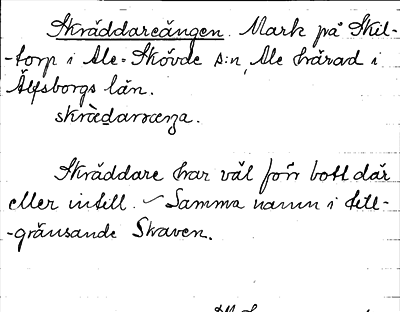 Skräddareängen. Mark på Skil-
-torp i Ale-Skövde s:n, Ale härad i
Älfsborgs län.
skræ̀daræŋa.
Skräddare har väl förr bott där
eller intill. – Samma namn i till-
-gränsande Skraven.